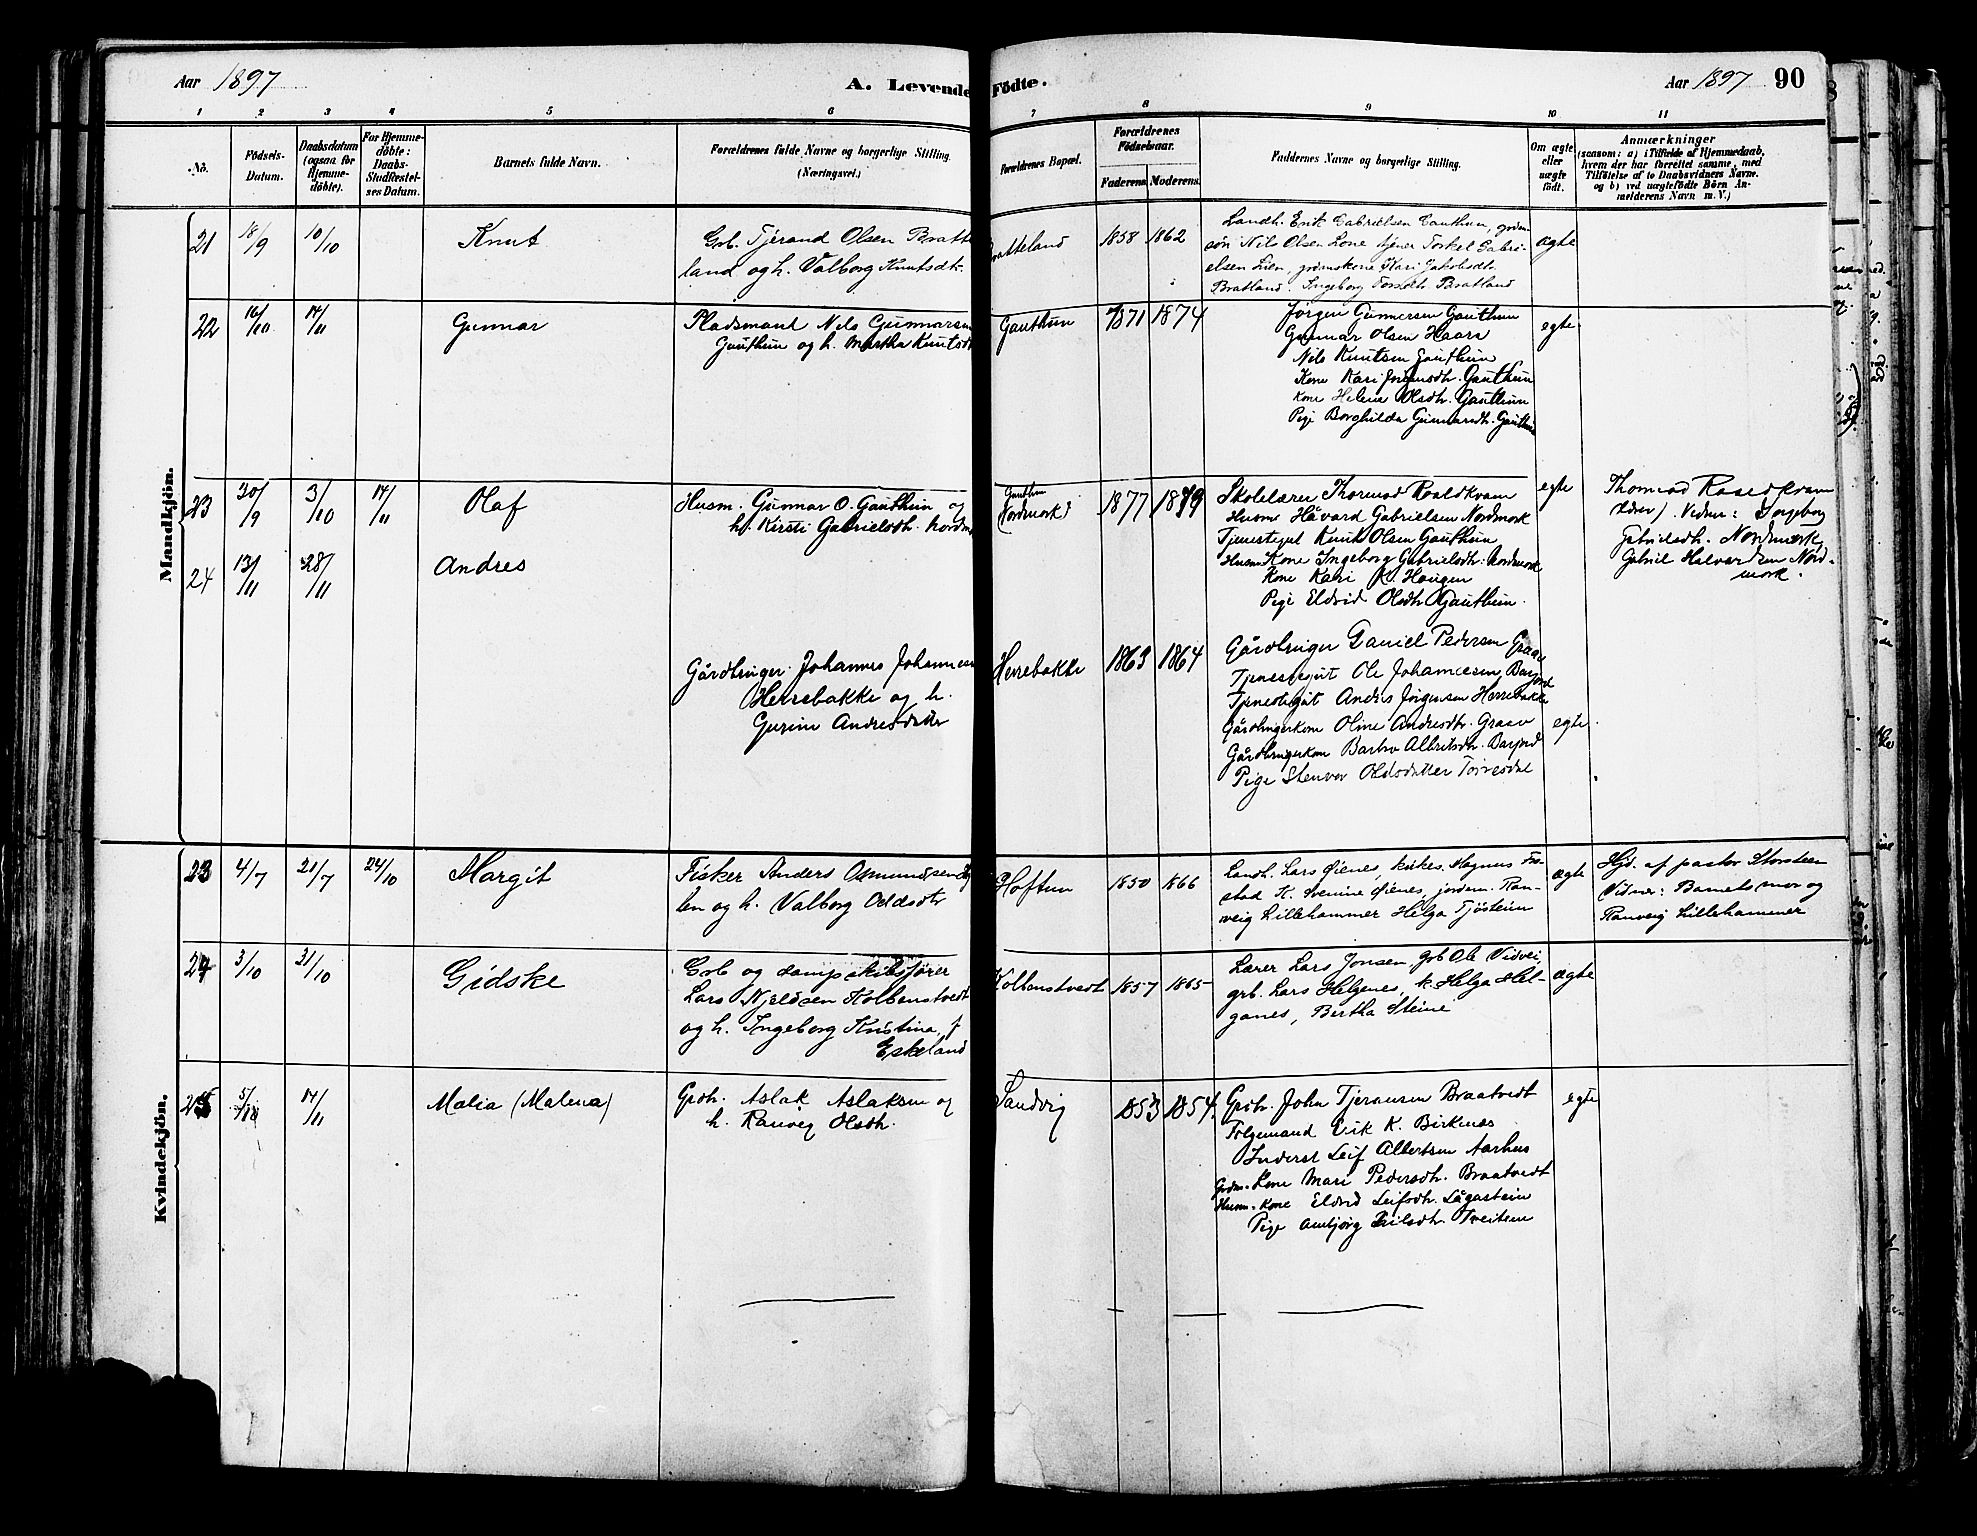 Aar 1897
A. Levende Födte.
Aar 1897 90
1 2 3 4 5 6 7 8 9 10 11
No.
Födsels-Datum.
Daabsdatum (ogsaa for Hjemme-döbte).
For Hjemme-döbte: Daabs-Stadfæstel-ses Datum.
Barnets fulde Navn.
Forældrenes fulde Navne og borgerlige Stilling.
(Næringsvei.)
Forældrenes Bopæl.
Forældrenes Födselsaar.
Faderens Moderens
Faddernes Navne og borgerlige Stilling.
Om ægte eller uægte födt.
Anmærkninger
(saasom: a) i Tilfælde af Hjemmedaab,
hvem der har forrettet samme, med
Tilföielse af to Daabsvidners Navne.
og b) ved uægtefödte Börn An-
melderens Navn m. V.)
Mandkjön.
21 18/9 10/10 Knut
Grb. Tjerand Olsen Bratte
land og h. Valborg Knutsdt.
Bratteland 1858 1862
Landh. Erik Gabrielsen Gauthun, grdm
sön Nils Olsen Lone tjener Torkel Gabri-
elsen Lien, grdmskone Kari Jakobsdt.
Bratland. Ingeborg Torsdt. Bratland
ægte
22 16/10 14/11 Gunnar
Pladsmand Nils Gunnarsen
Gauthun og h. Martha Knutsdt
Gauthun 1871 1874
Jörgen Gunnersen Gauthun
Gunnar Olsen Haara
Nils Knutsen Gauthun
Kone Kari Jörgensdtr. Gauthun
Kone Helene Olsdtr. Gauthun
Pige Borghilda Gunnarsdt. Gauthun
egte
23 30/9 3/10 14/11 Olaf
Husm. Gunnar O. Gauthun og
h. Kirsti Gabrielsdtr. Nordm
Gauthun
(Nordmork) 1877 1879
Skolelærer Thormod Roaldkvam
Husm Håvard Gabrielsen Nordmork
Tjenestegut Knut Olsen Gauthun
Husm. Kone Ingeborg Gabrielsdtr. Nordmork
Kone Kari K. Haugen
Pige Eldrid Olsdtr Gauthun.
egte
Thormod Roaldkvam
(Lærer). Vidner: Ingeborg
Gabrielsdtr. Nordmork
Gabriel Halvardsen Nord-
mork.
24 13/11 28/11 Andres
Gårdbruger Johannes Johannesen
Herrebakke og h.
Gurine Andresdatter
Herrebakke 1863 1864
Gårdbruger Daniel Pedersen Graae
Tjenestegut Ole Johannesen Barjord
Tjenestegut Andres Jörgensen Herrebakke
Gårdbrugerkone Oline Andresdtr. Graav
Gårdbrugerkone Barbro Albretsdtr. Barjord
Pige Stenvor Oldsdatter Tororsdal
egte
Kvindekjön.
23 4/7 21/7 24/10 Margit
Fisker Anders Osmundsen
len og h. Valborg Oddsdtr
Hoftun 1850 1866
Landh. Lars Öienes, kirkes. Magnus Fro-
stad K. Svenine Öienes, jordem. Ran-
veig Lillehammer Helga Tjösteim
ægte
Hjd. af pastor Storsteen
Vidner: Barnets mor og
Ranveig Lillehammer
24 3/10 31/10 Gidske
Grb og dampskibsförer
Lars Njeldsen Kolbenstvedt
og h. Ingeborg Kristina, f
Eskeland
Kolbenstvedt 1857 1865
Lærer Lars Jonsen, grb Ole Vidvei,
grb. Lars Helgenes, k. Helga Hel-
ganes, Bertha Steine
ægte
25 5/10 14/11 Malia (Malena)
Grbr. Aslak Aslaksen og
h. Ranveig Olsdtr.
Sandvig 1853 1854.
Grbr. John Tjeransen Braatvedt
Folgemand Erik K. Birkenes
Inderst Leif Albertsen Aarhus
Grdm-Kone Mari Pedersdtr. Braatvedt
Husm-Kone Eldrid Leifsdtr. Lågasteim
Pige Ambjörg Erilsdtr. Treitem
egte